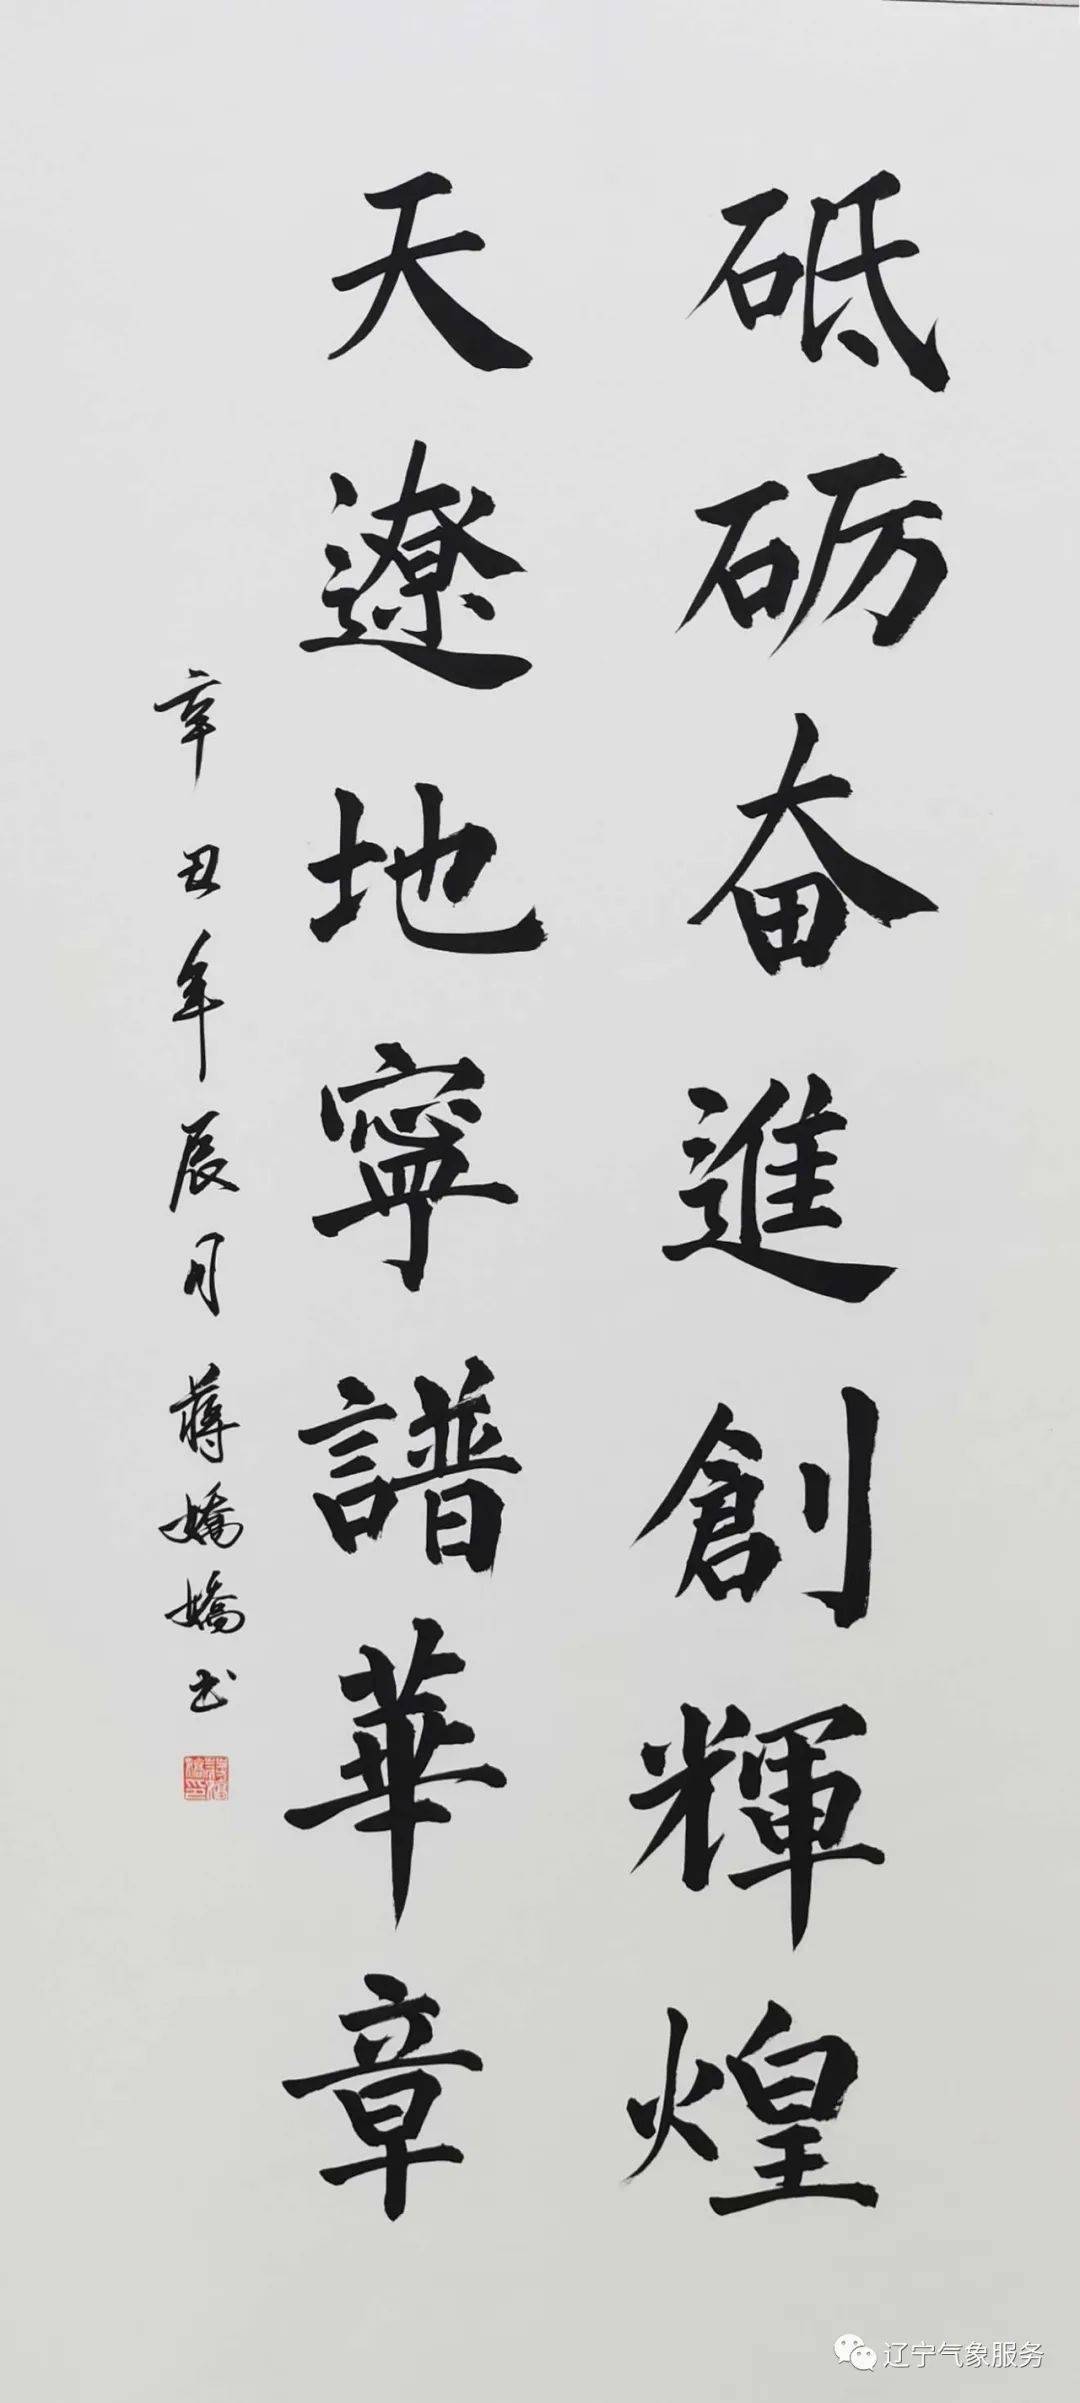 砥砺奋進創輝煌
天遼地寧譜華章
辛丑年辰月蔣嬌嬌书
辽宁气象服务